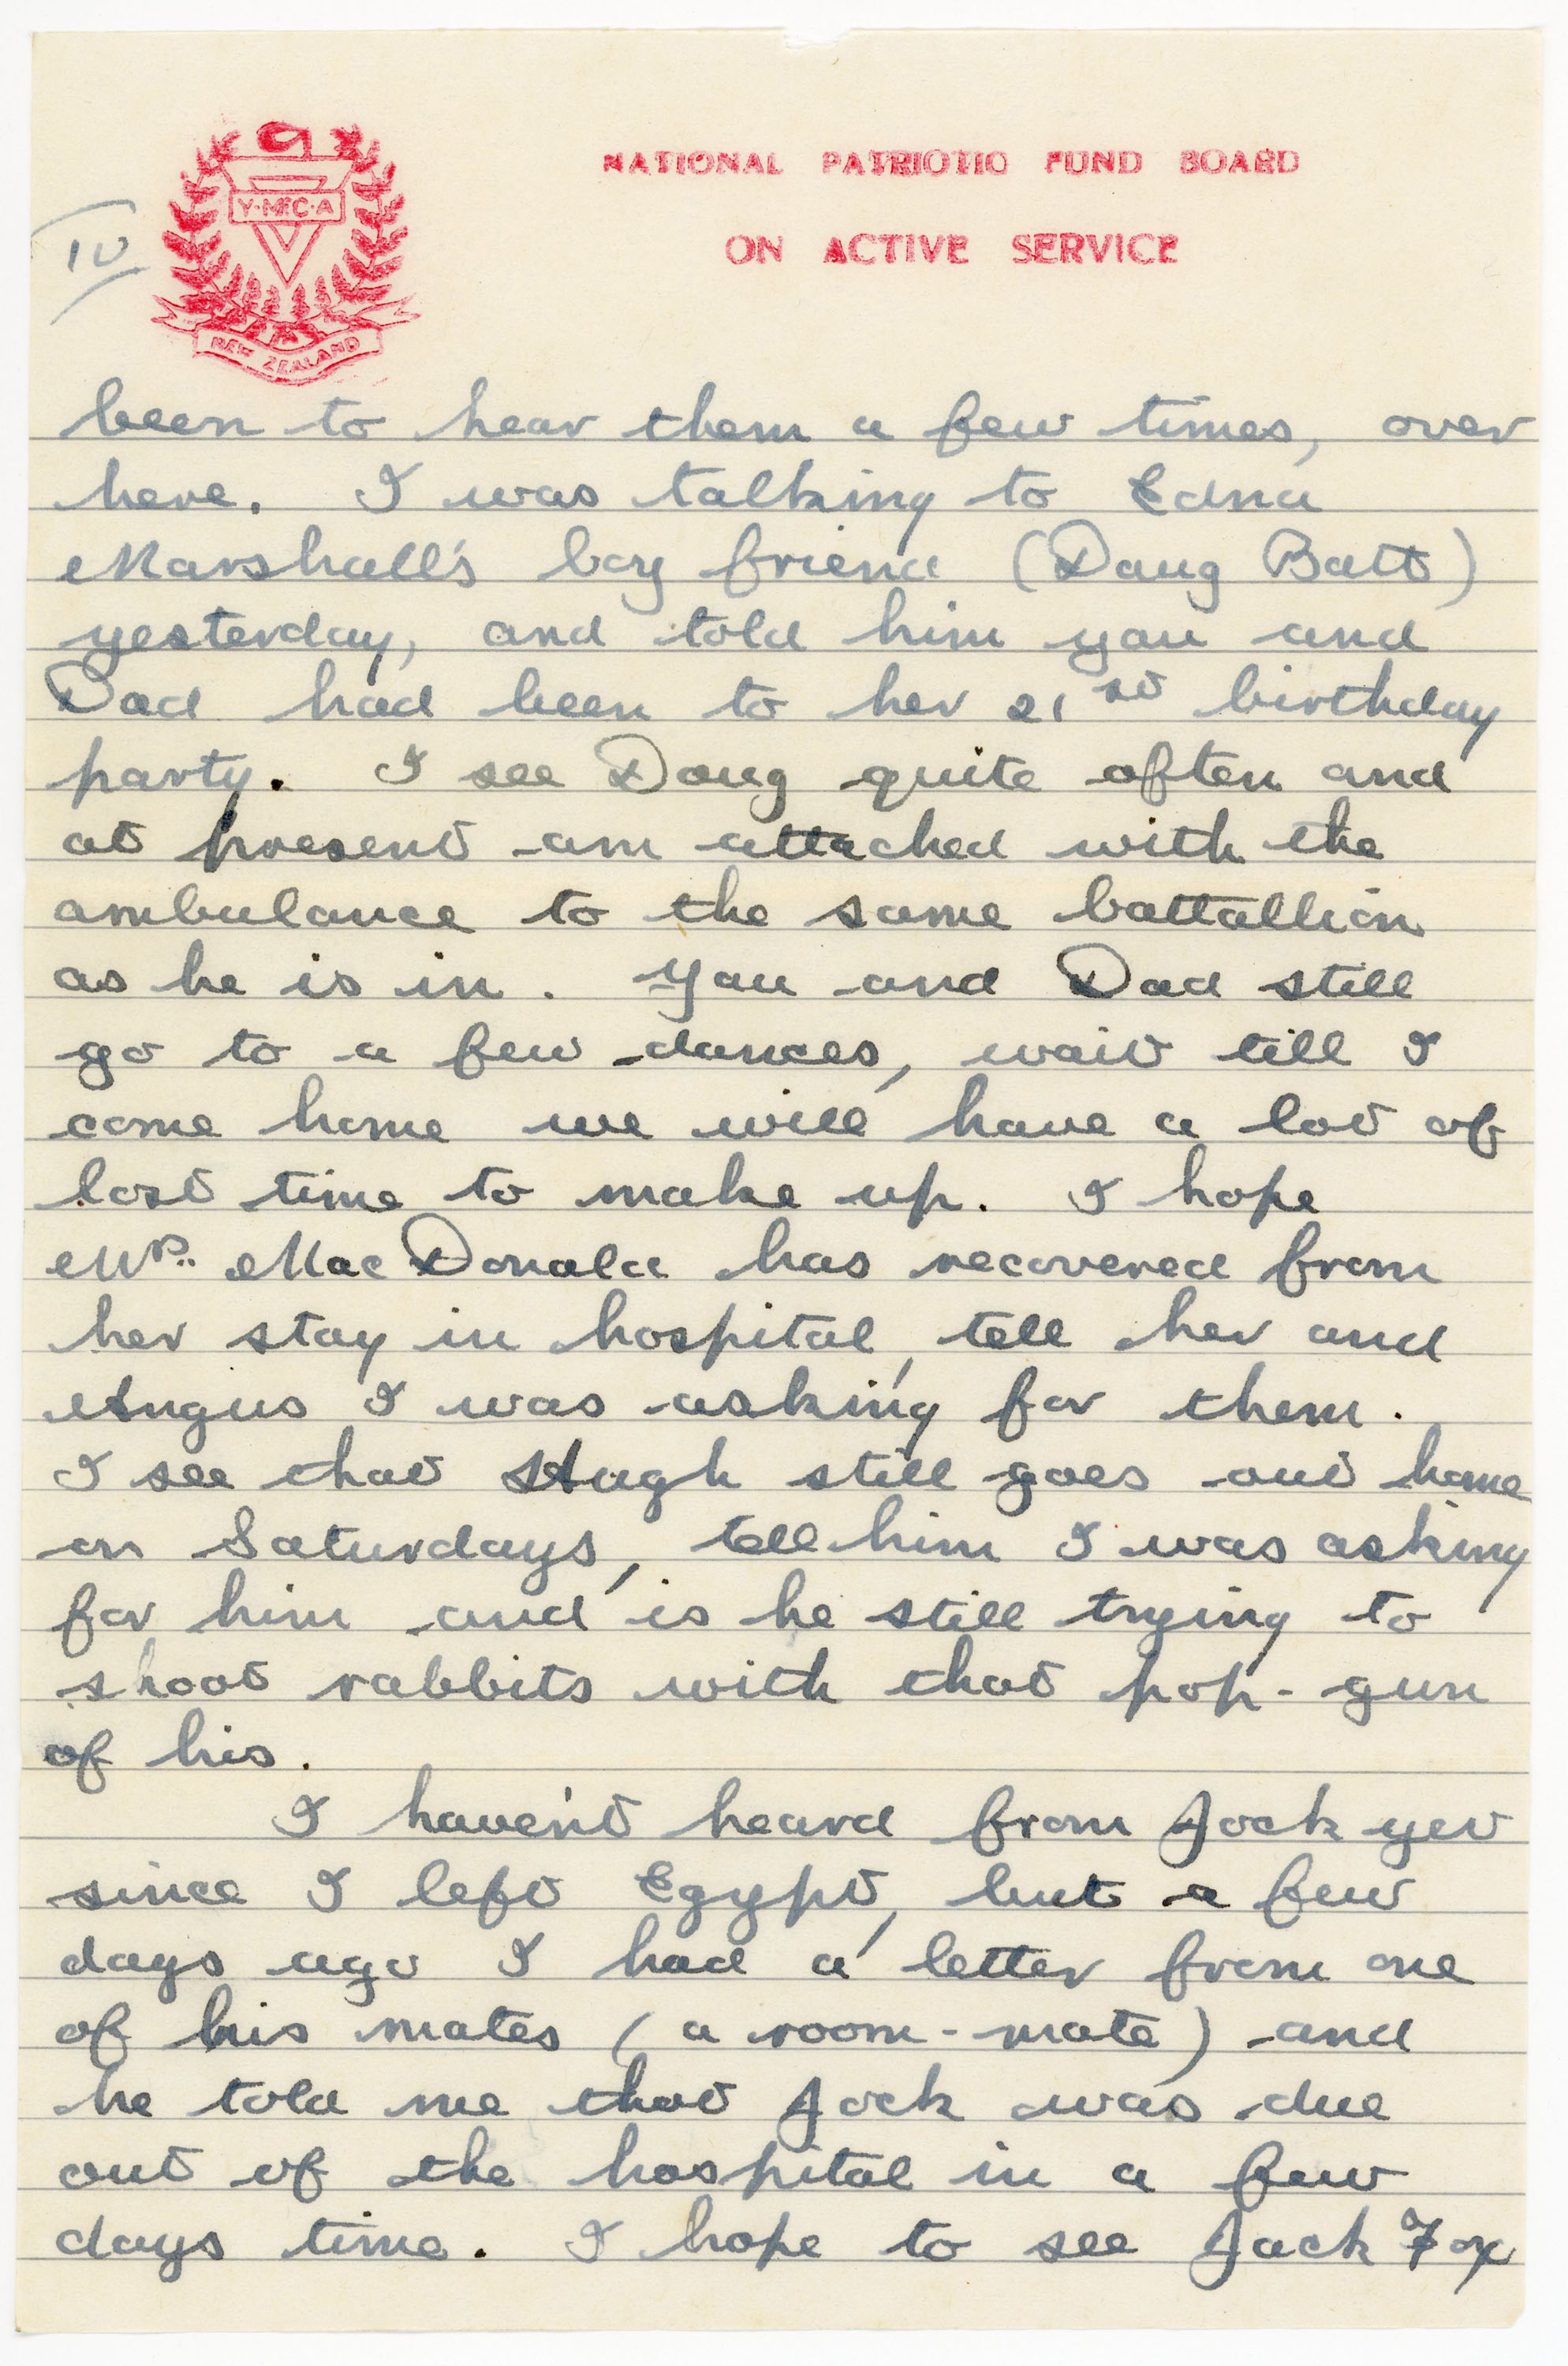 NATIONAL PATRIOTIC FUND BOARD
ON ACTIVE SERVICE
Y·M·C·A
NEW ZEALAND
IV
been to hear them a few times, over
here. I was talking to Edna
Marshall's boy friend (Doug Batt)
yesterday, and told him you and
Dad had been to her 21st birthday
party. I see Doug quite often and
at present am attached with the
ambulance to the same battallion
as he is in. You and Dad still
go to a few dances, wait till I
come home we will have a lot of
lost time to make up. I hope
Mrs. MacDonald has recovered from
her stay in hospital, tell her and
Angus I was asking for them.
I see that Hugh still goes out home
on Saturdays, tell him I was asking
for him and is he still trying to
shoot rabbits with that pop-gun
of his.
I haven't heard from Jock yet
since I left Egypt, but a few
days ago I had a letter from one
of his mates (a room-mate) and
he told me that Jock was due
out of the hospital in a few
days time. I hope to see Jack Fox